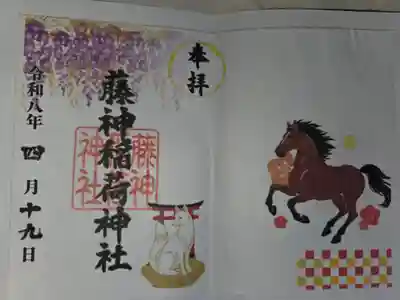 奉拝
藤神稲荷神社
藤神
神社
令和八年 四月十九日